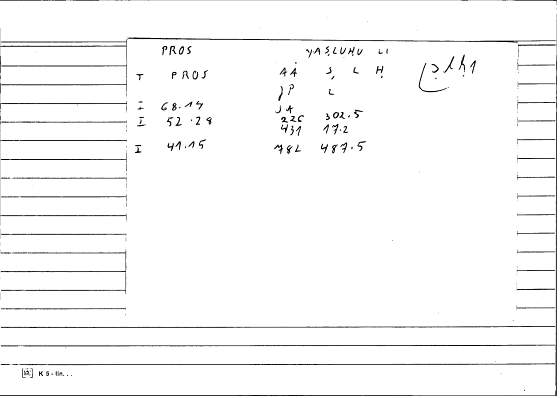 PROS YAṢLUḤU LI
I PROS AA Ṣ L Ḥ
JP L
I 68.14 JA
I 52.28 226 302.5
431 17.2
I 41.15 782 487.5
K 5 - lin. . .